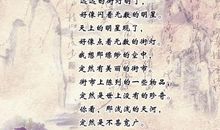 远远的街灯明了，
好像闪着无数的明星。
天上的明星现了，
好像点着无数的街灯。
我想那缥缈的空中，
定然有美丽的街市。
街市上陈列的一些物品，
定然是世上没有的珍奇。
你看，那浅浅的天河，
定然是不甚宽广。